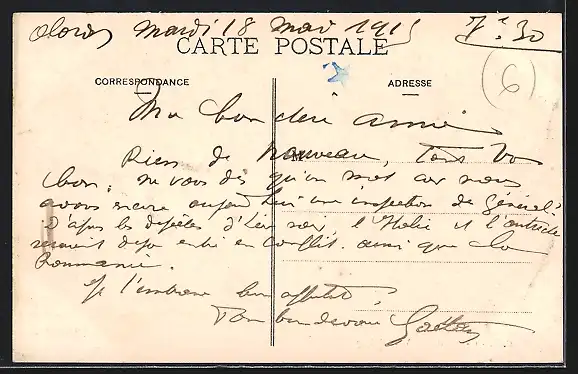 Oloron Mardi 18 Mai 1915 7h 30
CARTE POSTALE
CORRESPONDANCE ADRESSE
6
Ma bien chère amie
Rien de nouveau, tout va
bon; ne vous dis qu'un mot car nous
avons encore aujourd'hui une inspection de Général.
D'après les dépêches d'hier soir, l'Italie et l'Autriche
seraient déjà entré en conflit. ainsi que la
Roumanie.
Je t'embrasse bien
Ton bien Gaston